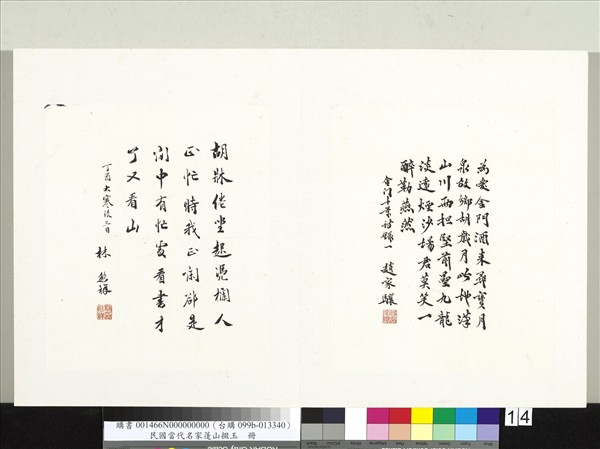 為愛金門酒來尋寶月
泉故鄉胡月吟漢
山川雨松堅壘九龍
淡遠煙沙場君莫笑一
醉勒燕然
金門十景詩錄一 趙家驤
胡牀倦坐起憑欄人
正忙時我正閒卻是
閒中有忙處看書才
了又看山
丁酉大寒後一日 林熊祥
購書 001466N000000000 (台購 099b-013340)
民國當代名家蓬山掇玉 冊
14